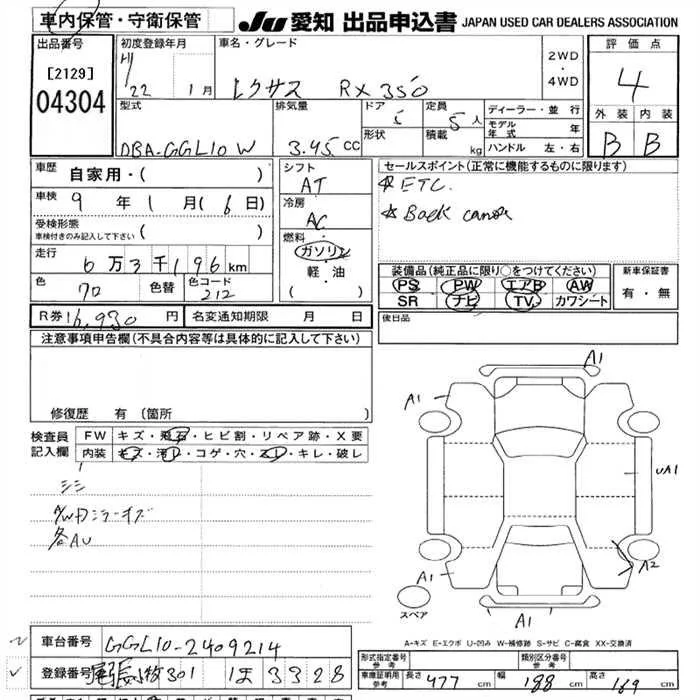 車内保管・守衛保管
JU 愛知 出品申込書 JAPAN USED CAR DEALERS ASSOCIATION
出品番号
[2129]
04304
初度登録年月
H
22 1月
車名・グレード
レクサス RX350
2WD
・
4WD
評価点
4
外装 内装
B B
型式
DBA-GGL10W
排気量
3.45 CC
ドア
5
形状
定員
5人
積載 kg
ディーラー・並行
モデル年式 年
ハンドル 左・右
車歴
自家用・( )
車検 9年1月(6日)
受検形態
車検付きのみ記入して下さい ( )
走行
6万3千196km
色
クロ
色替
色コード
212
シフト
AT
冷房
AC
燃料
ガソリン
軽・油
( )
セールスポイント(正常に機能するものに限ります)
ETC.
☆ Back camera
装備品(純正品に限り○をつけてください)
PS PW エアB AW
SR ナビ TV カワシート
新車保証書
有・無
R券 16,930円
名変通知期限 月 日
後日品
注意事項申告欄(不具合内容等は具体的に記入して下さい)
修復歴 有(箇所 )
検査員記入欄
FW キズ・飛石・ヒビ割・リペア跡・X要
内装 キズ・汚レ・コゲ・穴・スレ・キレ・破レ
各AU
A1
A1
UA1
A1
A2
スペア
A1
A-キズ E-エクボ U-凹み W-補修跡 S-サビ C-腐食 XX-交換済
車台番号 GGL10-2409214
登録番号 尾張小牧301 ほ 3328
型式指定番号
参考
類別区分番号
参考
車庫証明用
参考
長さ 477 cm
幅 188 cm
高さ 169 cm